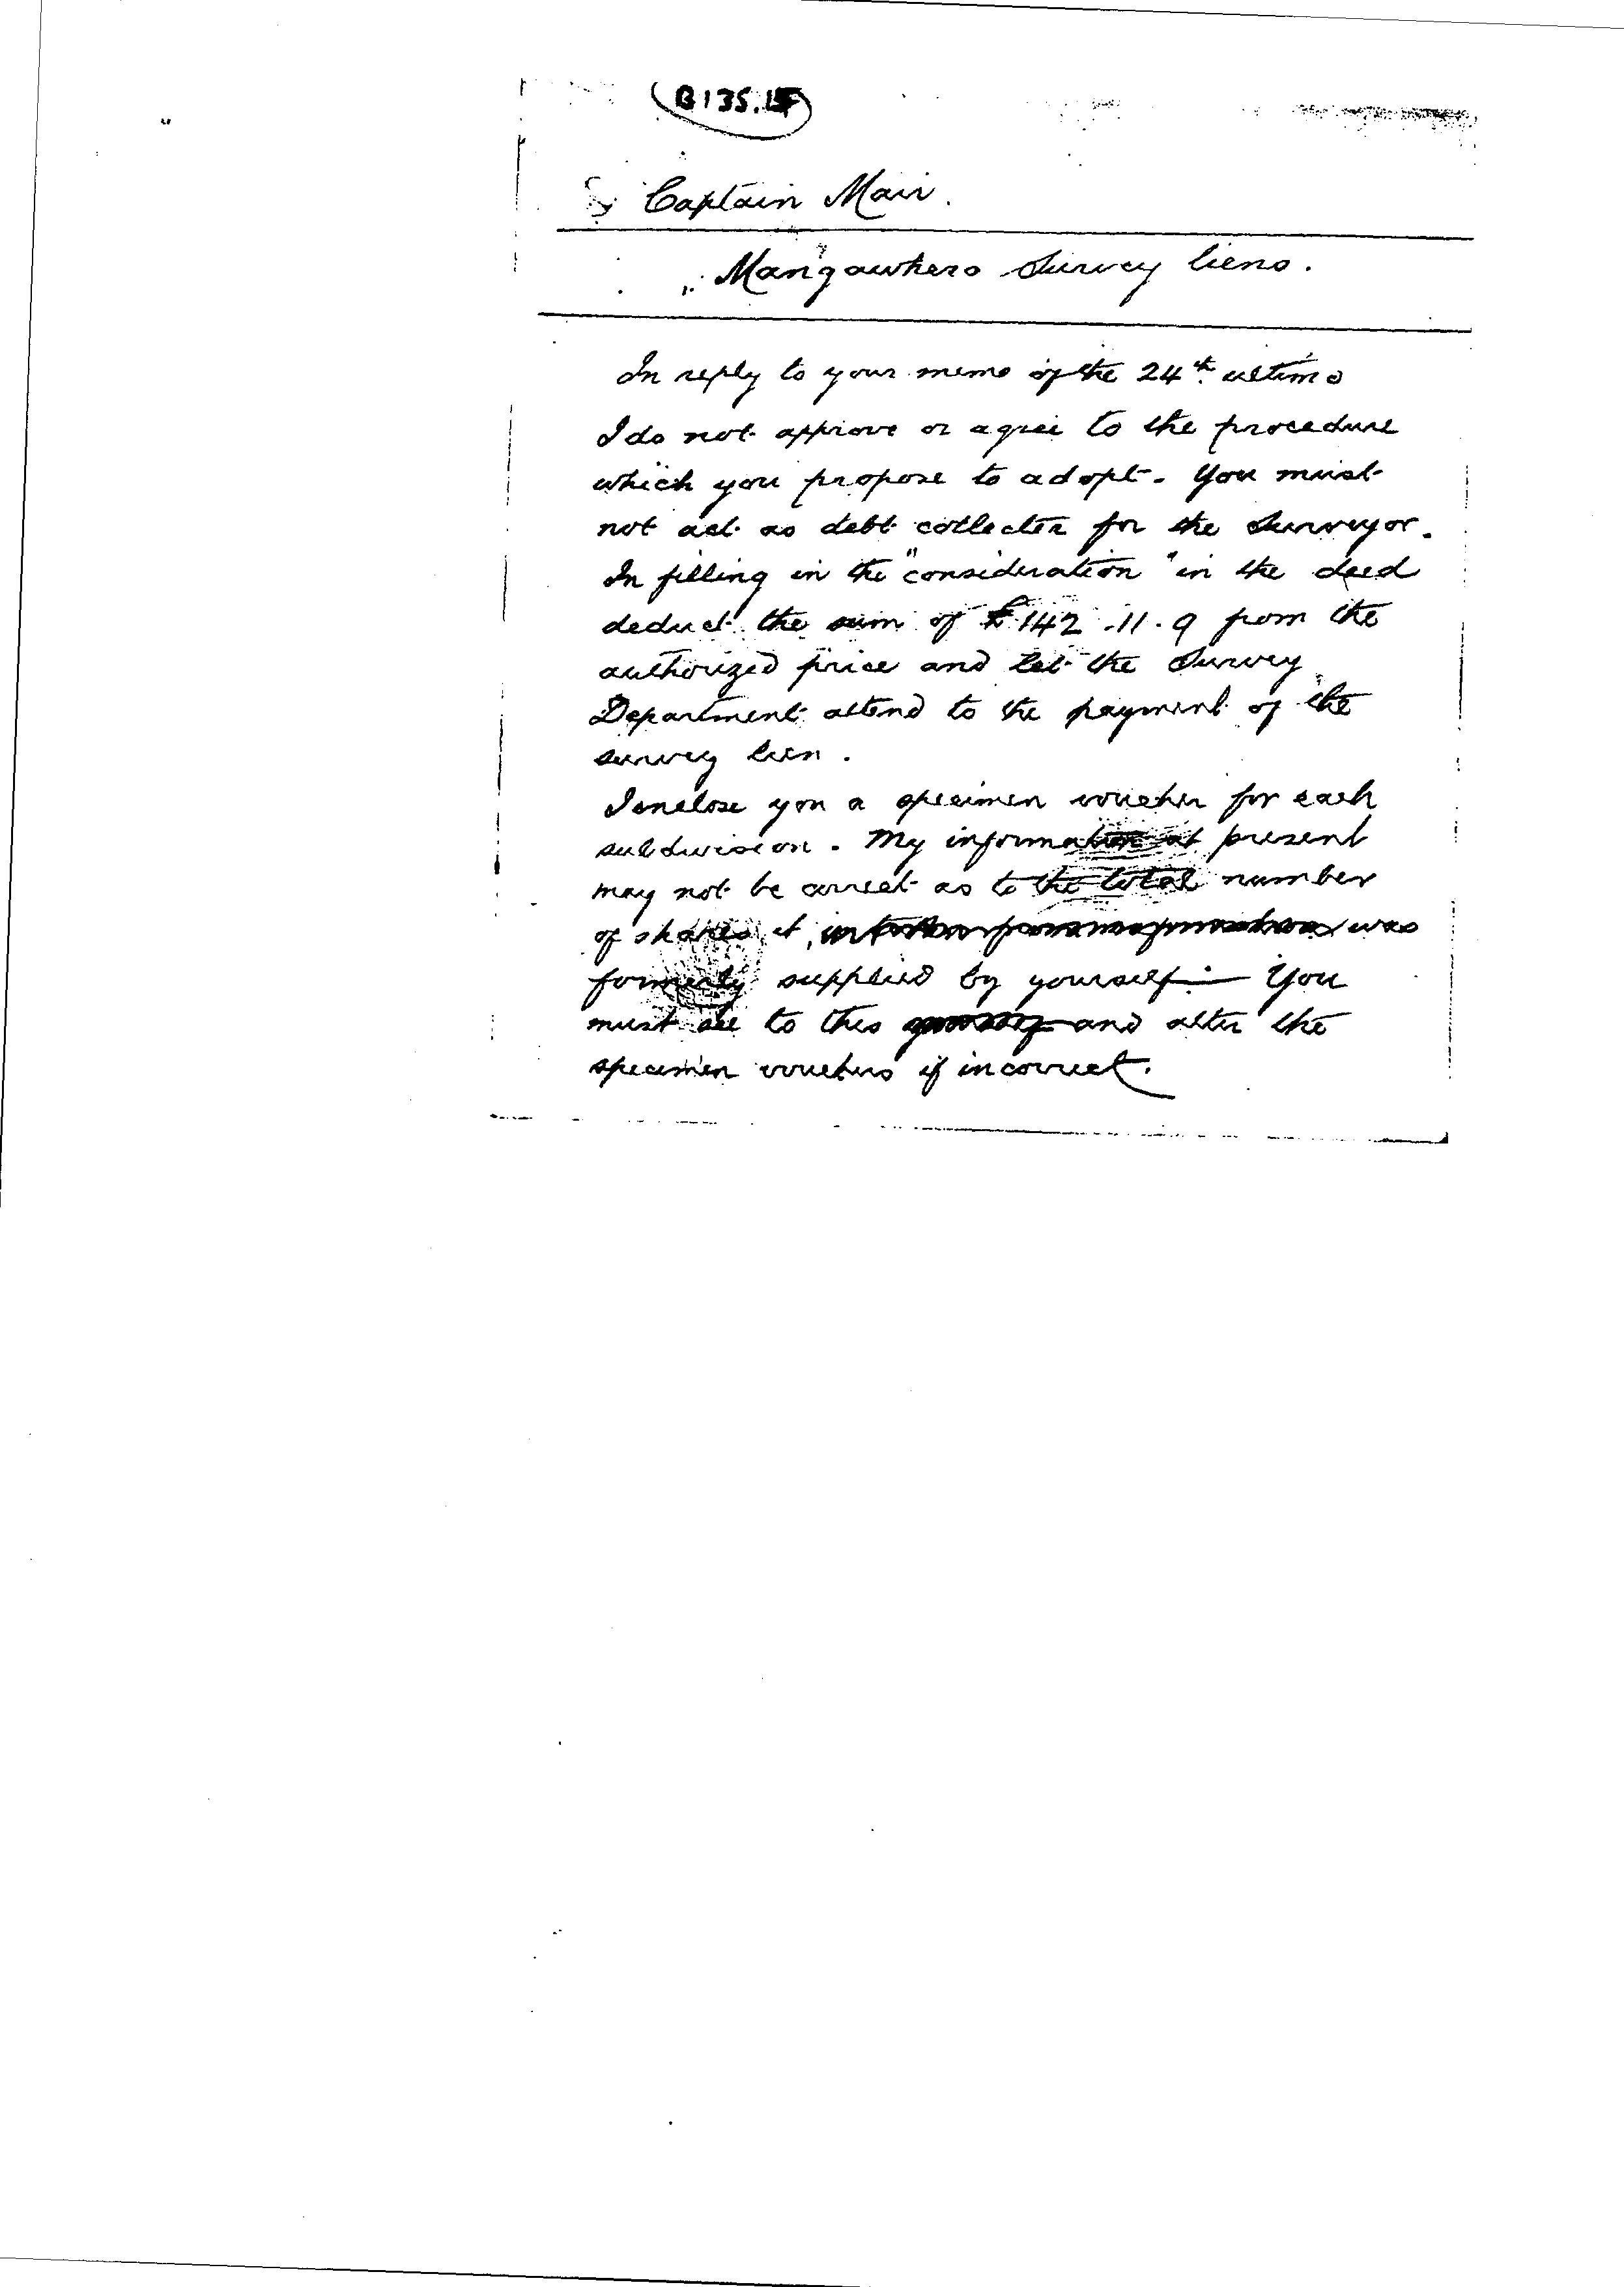 B135.15
Captain Mair.
Mangawhero Survey liens.
In reply to your memo of the 24th ultimo
I do not approve or agree to the procedure
which you propose to adopt. You must
not act as debt collecter for the Surveyor.
In filling in the "consideration" in the deed
deduct the sum of £142.11.9 from the
authorized price and let the Survey
Department attend to the payment of the
survey lien.
I enclose you a specimen voucher for each
subdivision. My information at present
may not be correct as to the total number
of shares it was
formerly supplied by yourself. You
must see to this and alter the
specimen vouchers if incorrect.